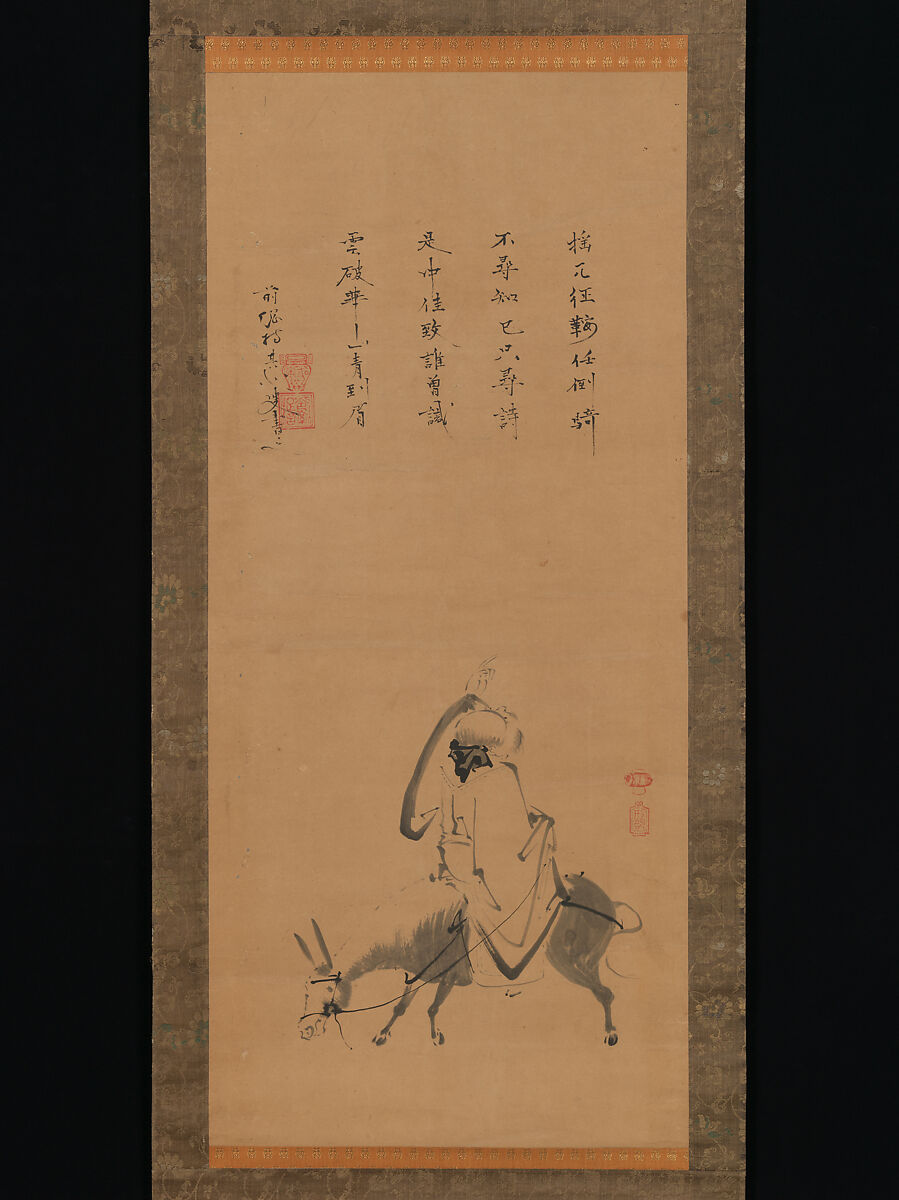 搖兀征鞍任倒騎
不尋知己只尋詩
是中佳致誰曾識
雲破華山青到眉
前
書